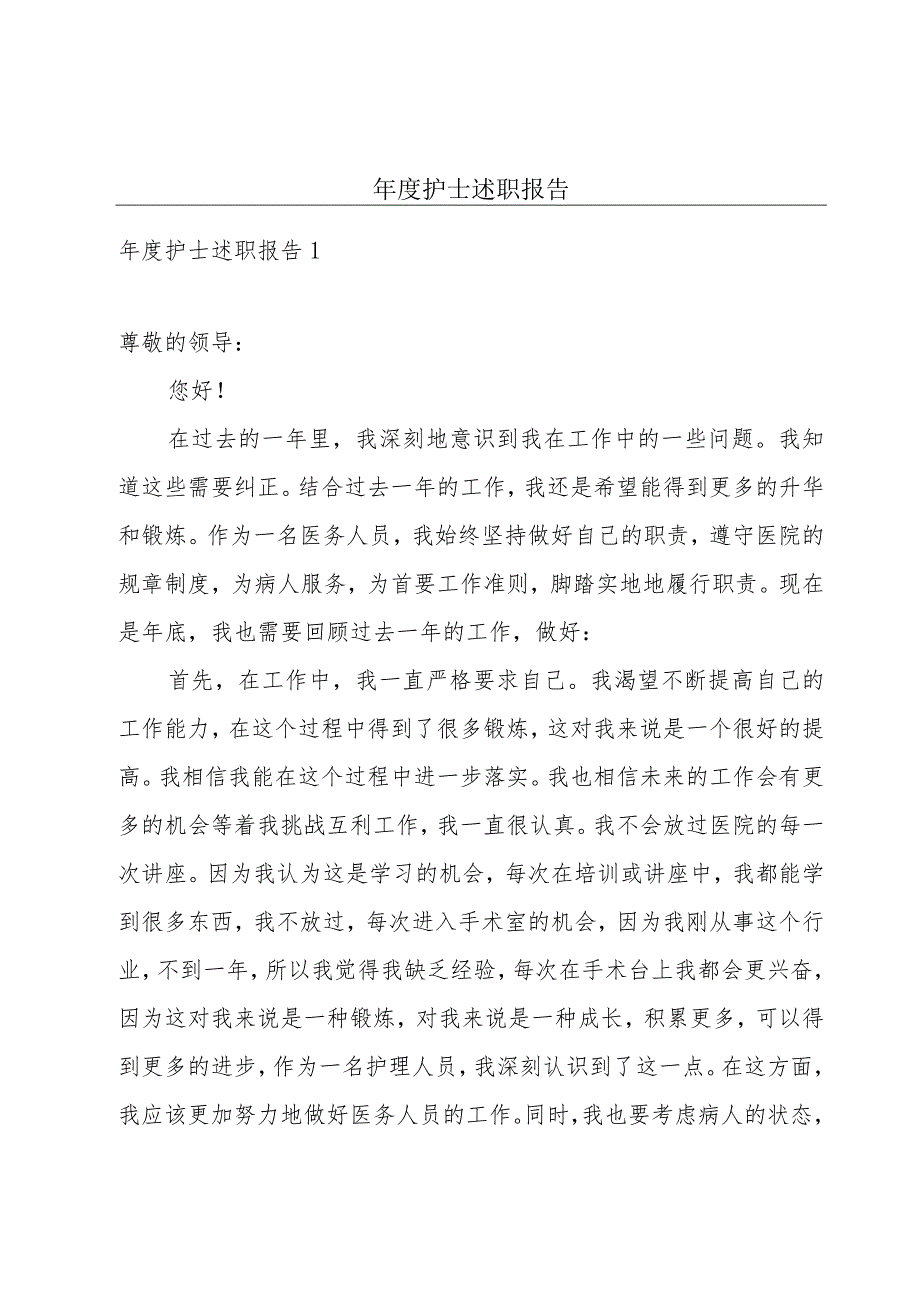 年度护士述职报告
年度护士述职报告1
尊敬的领导：
您好！
在过去的一年里，我深刻地意识到我在工作中的一些问题。我知
道这些需要纠正。结合过去一年的工作，我还是希望能得到更多的升华
和锻炼。作为一名医务人员，我始终坚持做好自己的职责，遵守医院的
规章制度，为病人服务，为首要工作准则，脚踏实地地履行职责。现在
是年底，我也需要回顾过去一年的工作，做好：
首先，在工作中，我一直严格要求自己。我渴望不断提高自己的
工作能力，在这个过程中得到了很多锻炼，这对我来说是一个很好的提
高。我相信我能在这个过程中进一步落实。我也相信未来的工作会有更
多的机会等着我挑战互利工作，我一直很认真。我不会放过医院的每一
次讲座。因为我认为这是学习的机会，每次在培训或讲座中，我都能学
到很多东西，我不放过，每次进入手术室的机会，因为我刚从事这个行
业，不到一年，所以我觉得我缺乏经验，每次在手术台上我都会更兴奋，
因为这对我来说是一种锻炼，对我来说是一种成长，积累更多，可以得
到更多的进步，作为一名护理人员，我深刻认识到了这一点。在这方面，
我应该更加努力地做好医务人员的工作。同时，我也要考虑病人的状态，